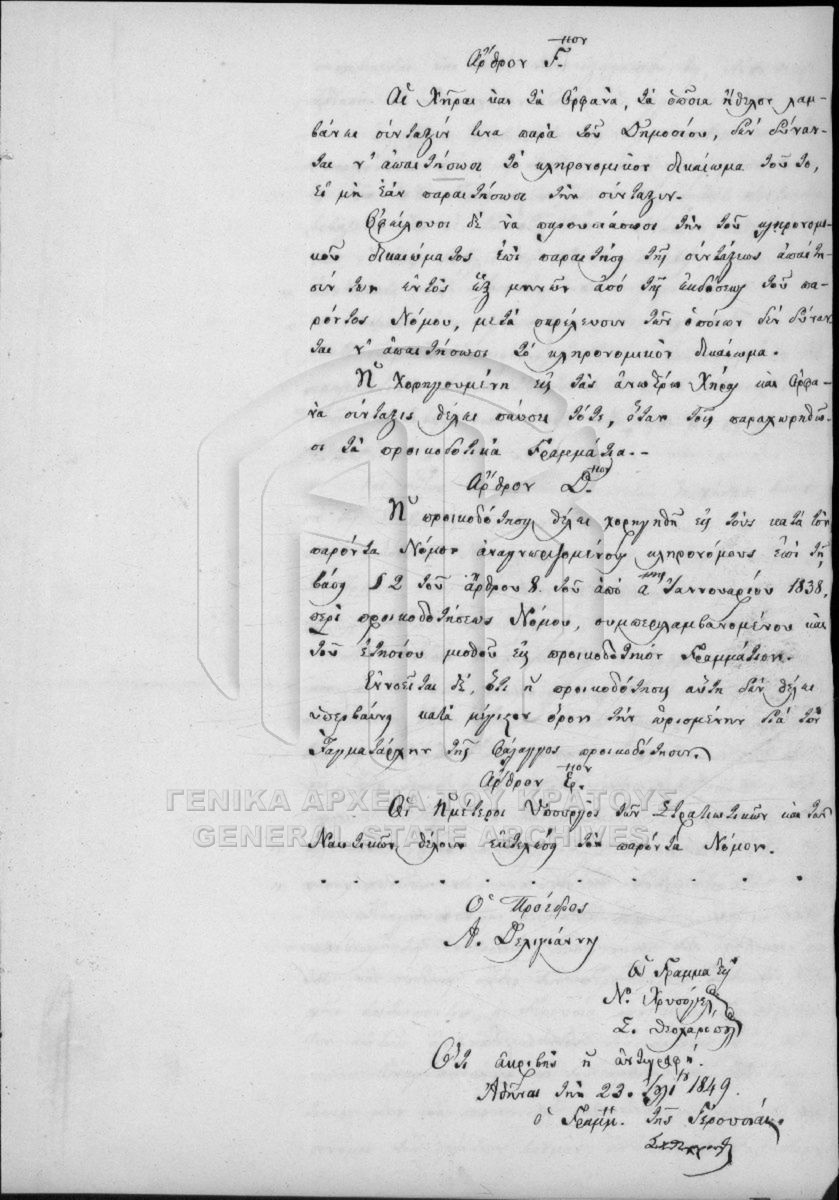 Ἄρθρον Γ.ον
Αἱ Χῆραι καὶ τὰ Ὀρφανὰ, τὰ ὁποῖα ἤθελον λαμ-
βάνει σύνταξίν τινα παρὰ τοῦ Δημοσίου, δὲν δύναν-
ται ν' ἀπαιτήσωσι τὸ κληρονομικὸν δικαίωμα τοῦτο,
εἰ μὴ ἐὰν παραιτήσωσι τὴν σύνταξιν.
Ὀφείλουσι δὲ νὰ παρουσιάσωσι τὴν τοῦ κληρονομι-
κοῦ δικαιώματος ἐπὶ παραιτήσει τῆς συντάξεως ἀπαίτη-
σίν των ἐντὸς ἓξ μηνῶν ἀπὸ τῆς ἐκδόσεως τοῦ πα-
ρόντος Νόμου, μετὰ παρέλευσιν τῶν ὁποίων δὲν δύναν
ται ν' ἀπαιτήσωσι τὸ κληρονομικὸν δικαίωμα.
Ἡ χορηγουμένη εἰς τὰς ἀνωτέρω Χήρας καὶ Ὀρφα-
νὰ σύνταξις θέλει παύσει τότε, ὅταν τοῖς παραχωρηθῶ-
σι τὰ προικοδοτικὰ Γραμμάτια.-
Ἄρθρον Δ.ον
Ἡ προικοδότησις θέλει χορηγηθῆ εἰς τοὺς κατὰ τὸν
παρόντα Νόμον ἀναγνωριζομένους κληρονόμους ἐπὶ τῇ
βάσει § 2 τοῦ ἄρθρου 8. τοῦ ἀπὸ α Ἰαννουαρίου 1838,
περὶ προικοδοτήσεως Νόμου, συμπεριλαμβανομένου καὶ
τοῦ ἐτησίου μισθοῦ εἰς προικοδοτικὸν Γραμμάτιον.
Ἐννοεῖται δὲ, ὅτι ἡ προικοδότησις αὕτη δὲν θέλει
ὑπερβαίνει κατὰ μέγιστον ὅρον τὴν ὡρισμένην διὰ τὸν
Ταγματάρχην τῆς Φάλαγγος προικοδότησιν.
Ἄρθρον Ε.ον
Οἱ Ἡμέτεροι Ὑπουργοὶ τῶν Στρατιωτικῶν καὶ τῶν
Ναυτικῶν θέλουν ἐκτελέσει τὸν παρόντα Νόμον.
. . . . . . . . . .
Ὁ Πρόεδρος
Α. Δεληγιάννης
Οἱ Γραμματεῖς
Ν. Χρυσόγελος
Ὅτι ἀκριβὴς ἡ ἀντιγραφή.
Ἀθῆναι τὴν 23. 1849.
ὁ Γραμμ. τῆς Γερουσίας.
ΓΕΝΙΚΑ ΑΡΧΕΙΑ ΤΟΥ ΚΡΑΤΟΥΣ
GENERAL STATE ARCHIVES